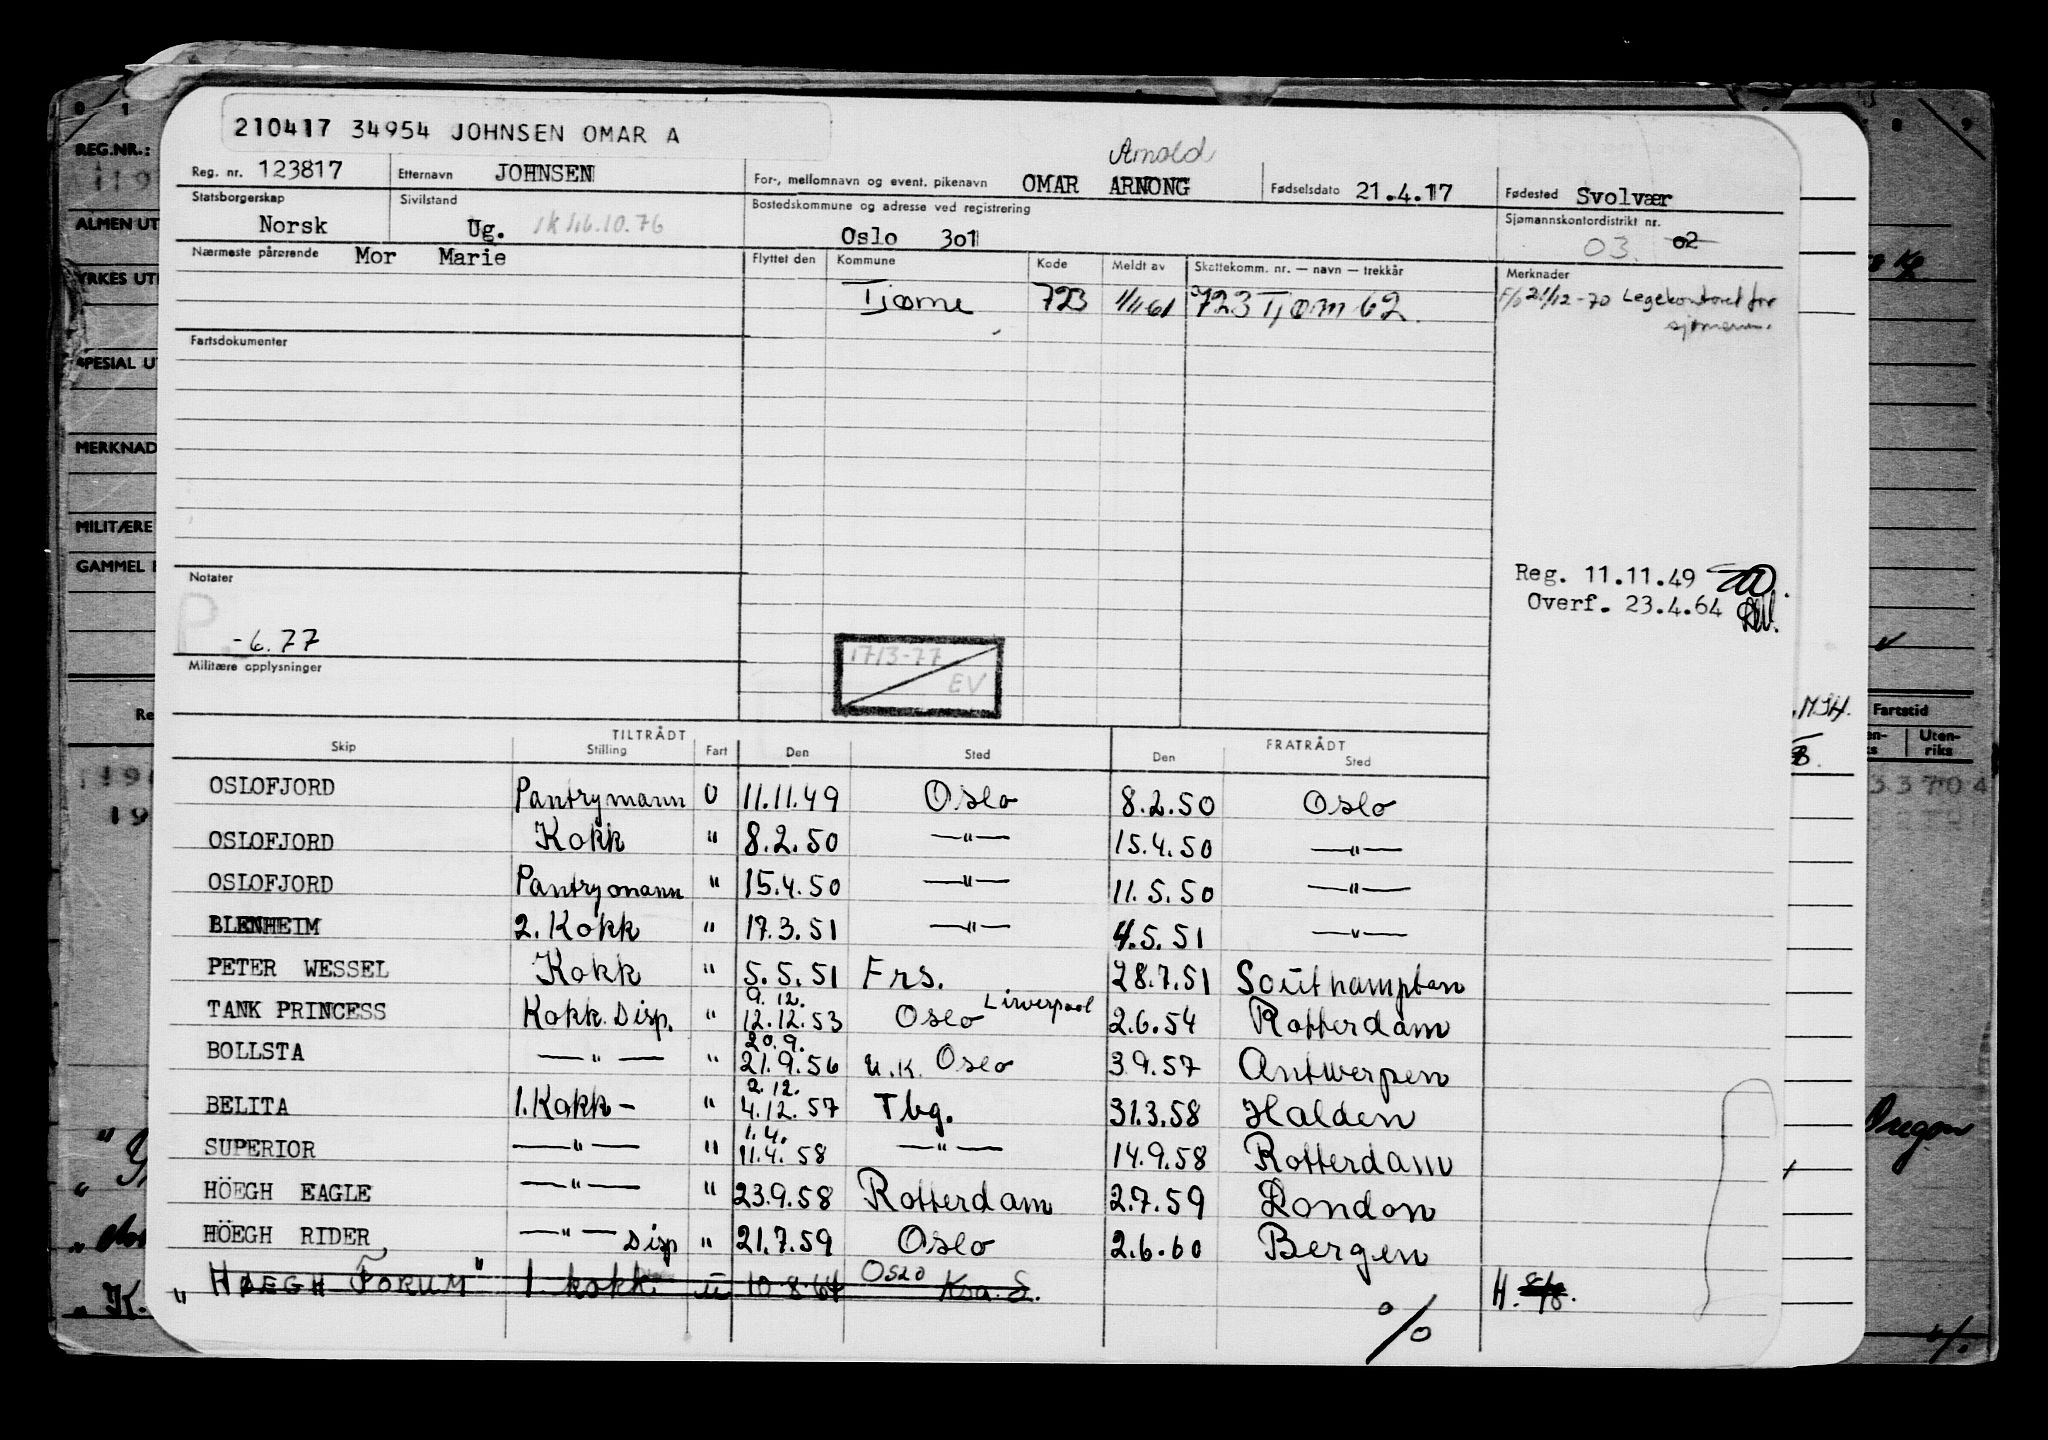 210417 34954 JOHNSEN OMAR A
Reg. nr. 123817 Etternavn JOHNSEN For-, mellomnavn og event. pikenavn OMAR ARNONG Arnold Fødselsdato 21.4.17 Fødested Svolvær
Statsborgerskap Norsk Sivilstand Ug. Bostedskommune og adresse ved registrering Oslo 301 Sjømannskontordistrikt nr. 03. 02
Nærmeste pårørende Mor Marie Flyttet den Kommune Kode Meldt av Skattekomm. nr. — navn — trekkår Merknader
Tjøme 723 1/1 61 723 Tjøm 62. 21/12-70 Legekontoret for
sjømenn.
Fartsdokumenter
Reg. 11.11.49
Overf. 23.4.64
Notater
P
-6.77
17/3-77
EV
Militære opplysninger
TILTRÅDT FRATRÅDT
Skip Stilling Fart Den Sted Den Sted
OSLOFJORD Pantrymann U 11.11.49 Oslo 8.2.50 Oslo
OSLOFJORD Kokk " 8.2.50 —"— 15.4.50 —"—
OSLOFJORD Pantrymann " 15.4.50 —"— 11.5.50 —"—
BLENHEIM 2. Kokk " 17.3.51 —"— 4.5.51 —"—
PETER WESSEL Kokk " 5.5.51 Frs. 28.7.51 Southampton
TANK PRINCESS Kokk. Disp. " 9.12. 12.12.53 Oslo Liverpool 2.6.54 Rotterdam
BOLLSTA —"— " 20.9. 21.9.56 U.K. Oslo 3.9.57 Antwerpen
BELITA 1. Kokk - " 2.12. 4.12.57 Tbg. 31.3.58 Halden
SUPERIOR —"— " 1.4. 11.4.58 —"— 14.9.58 Rotterdam
HÖEGH EAGLE —"— " 23.9.58 Rotterdam 2.7.59 London
HÖEGH RIDER —"— Disp " 21.7.59 Oslo 2.6.60 Bergen
"HØEGH FORUM" 1. kokk u 10.8.64 Oslo H.
%
0 1 8 9
REG.NR.:
119
ALMEN UT
YRKES UT
SPESIAL U
MERKNAD
MILITÆRE
GAMMEL
Re
19
M/H.
Fartstid
Uten-
riks
33704
Oregon